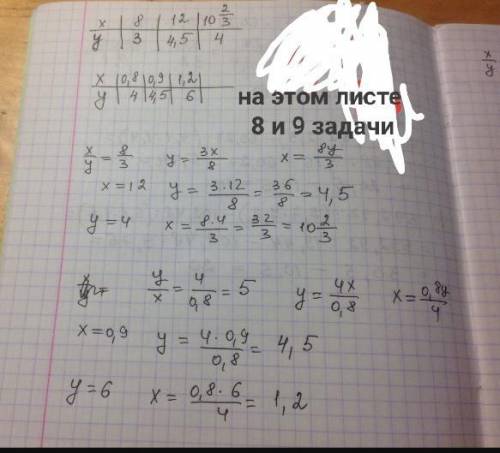 x | 8 | 12 | 10 2/3
y | 3 | 4,5 | 4
x | 0,8 | 0,9 | 1,2 |
y | 4 | 4,5 | 6 |
на этом листе
8 и 9 задачи
x/y
x/y = 8/3 y = 3x/8 x = 8y/3
x = 12 y = 3·12/8 = 36/8 = 4,5
y = 4 x = 8·4/3 = 32/3 = 10 2/3
y/x = 4/0,8 = 5 y = 4x/0,8 x = 0,8y/4
x = 0,9 y = 4·0,9/0,8 = 4,5
y = 6 x = 0,8·6/4 = 1,2